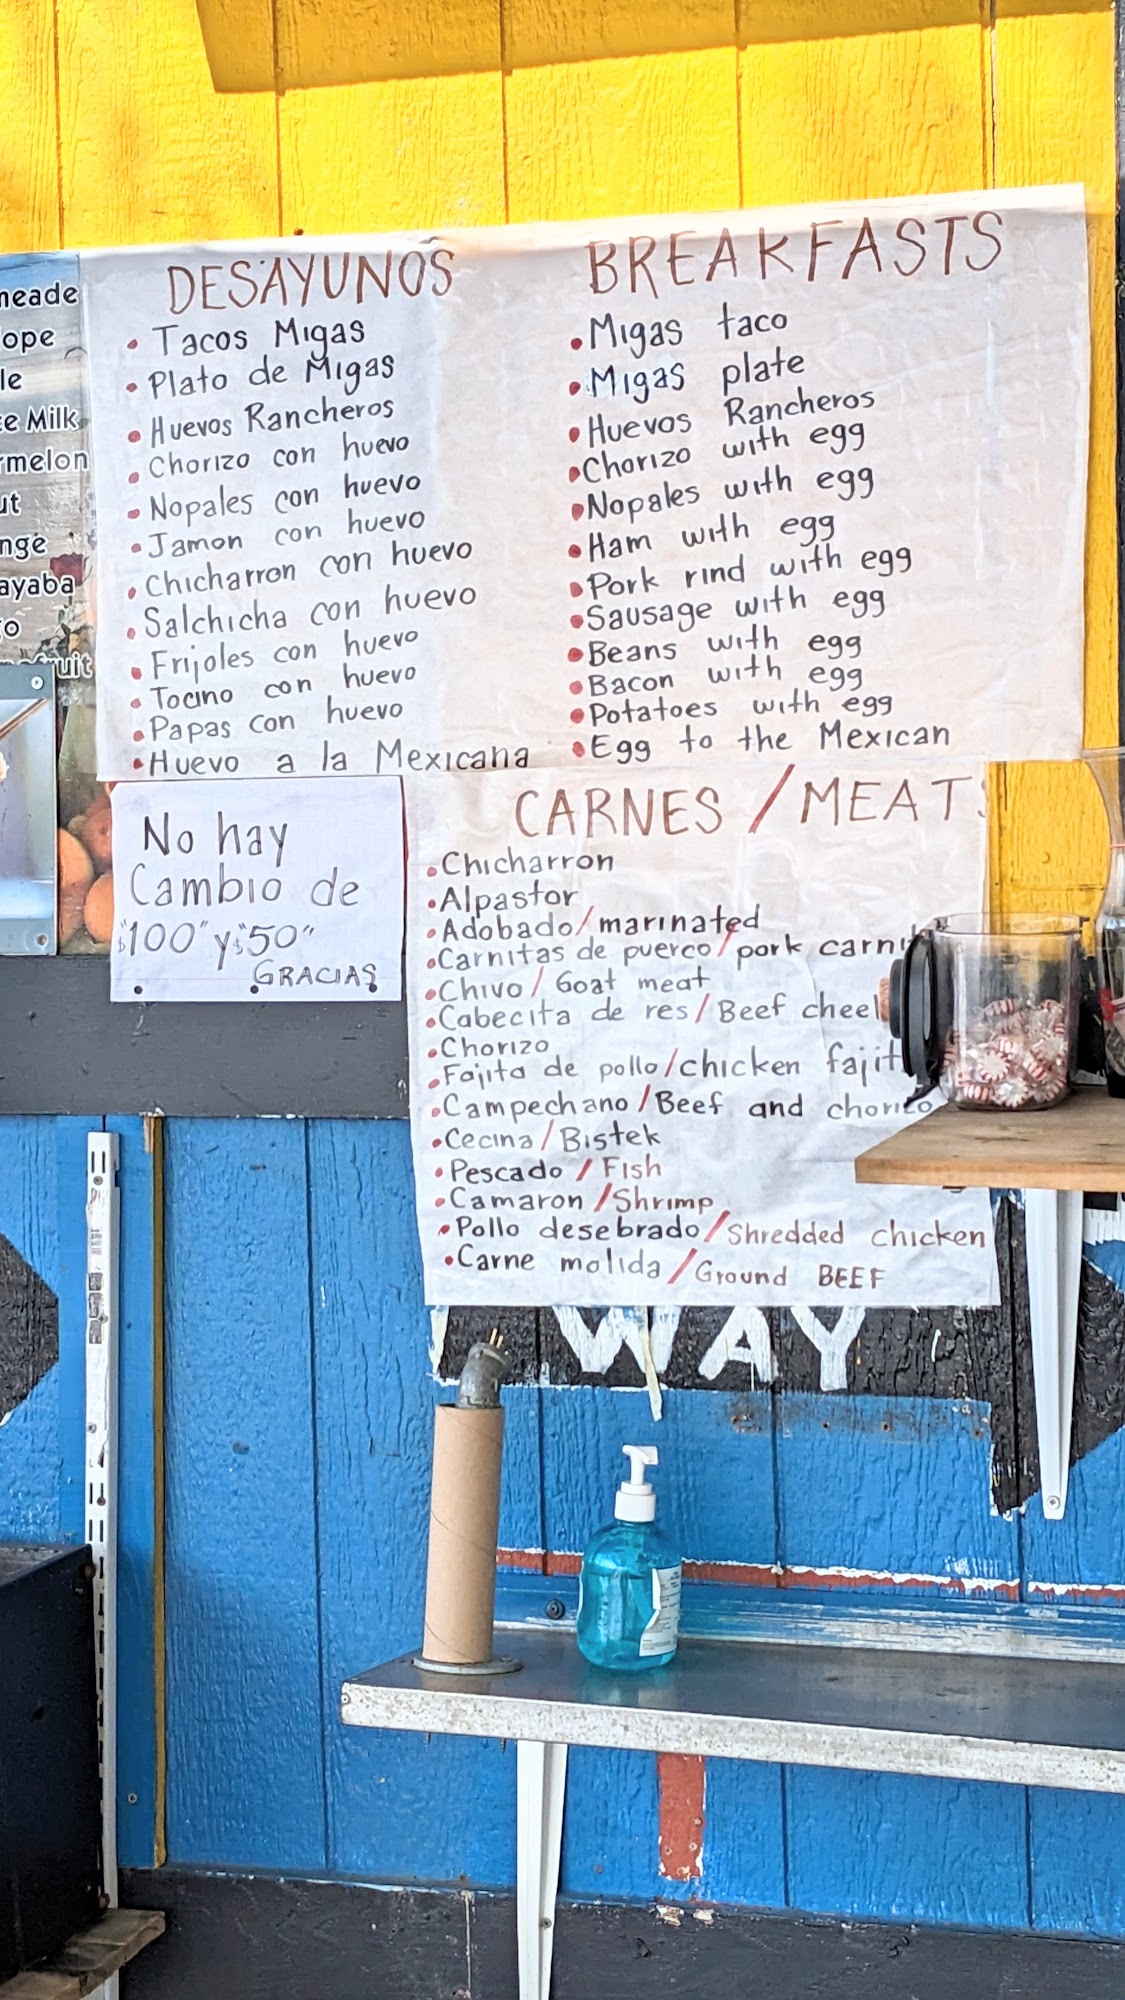 DESAYUNOS
• Tacos Migas
• Plato de Migas
• Huevos Rancheros
• Chorizo con huevo
• Nopales con huevo
• Jamon con huevo
• Chicharron con huevo
• Salchicha con huevo
• Frijoles con huevo
• Tocino con huevo
• Papas con huevo
• Huevo a la Mexicana
BREAKFASTS
• Migas taco
• Migas plate
• Huevos Rancheros
• Chorizo with egg
• Nopales with egg
• Ham with egg
• Pork rind with egg
• Sausage with egg
• Beans with egg
• Bacon with egg
• Potatoes with egg
• Egg to the Mexican
No hay
Cambio de
$100" y $"50"
GRACIAS
CARNES / MEAT
• Chicharron
• Alpastor
• Adobado/marinated
• Carnitas de puerco/pork carni
• Chivo/Goat meat
• Cabecita de res/Beef cheek
• Chorizo
• Fajita de pollo/chicken fajit
• Campechano/Beef and chorizo
• Cecina/Bistek
• Pescado/Fish
• Camaron/Shrimp
• Pollo desebrado/Shredded chicken
• Carne molida/Ground BEEF
WAY
neade
ope
le
e Milk
rmelon
ut
nge
ayaba
o
uit